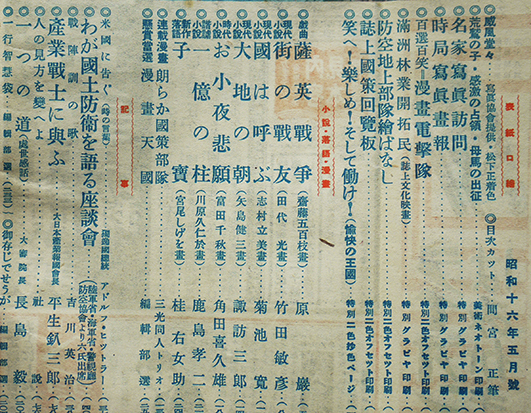 昭和十六年五月號
表紙・口繪
◎目次カット 間宮正
威風堂々 寫眞協會提供・松下正着色 美術ネオトーン印刷
荒鷲の子・感激の占領・母馬の出征 特別グラビヤ印刷
名家寫眞訪問 特別グラビヤ印刷
時局寫眞畫報 特別グラビヤ印刷
百選百笑=漫畫電擊隊 特別二色オフセット印刷
滿洲林業開拓民(誌上文化映畫) 特別グラビヤ印刷
防空地上部隊繪ばなし 特別二色オフセット印刷
誌上國策回覽板
笑へ!樂しめ!そして働け!(愉快の王國) 特別二色刷
小說・落語・漫畫
戲曲 薩英戰爭 (齋藤五百枝畫) 原巖
現代小說 街の戰友 (田代光畫) 竹田敏彥
現代小說 國は呼ぶ (志村立美畫) 菊池寬
大地の朝 (矢島健三畫) 諏訪三郎
お小夜悲願 (富田千秋畫) 角田喜久雄
一億の柱 (川原久仁於畫) 鹿島孝二
新作落語 子寶 (宮尾しげを畫) 桂右女助
連載漫畫 朗らか國策部隊 三光同人トリオ
懸賞當選 漫畫天國 編輯部選
記事
米國に告ぐ(時の言葉) アドルフ・ヒットラー
わが國土防衞を語る座談會 (陸軍省・海軍省・警視廳・防空協會より六氏出席)
戰陣訓の歌 吉川英治
產業戰士に與ふ 大日本產業報國會長 平生釟三郎
人の見方を變へよ 社說
一つの道(處世感話) 大審院長 長島毅
一行智慧袋 編輯部選
御存じでせうが 編輯部選